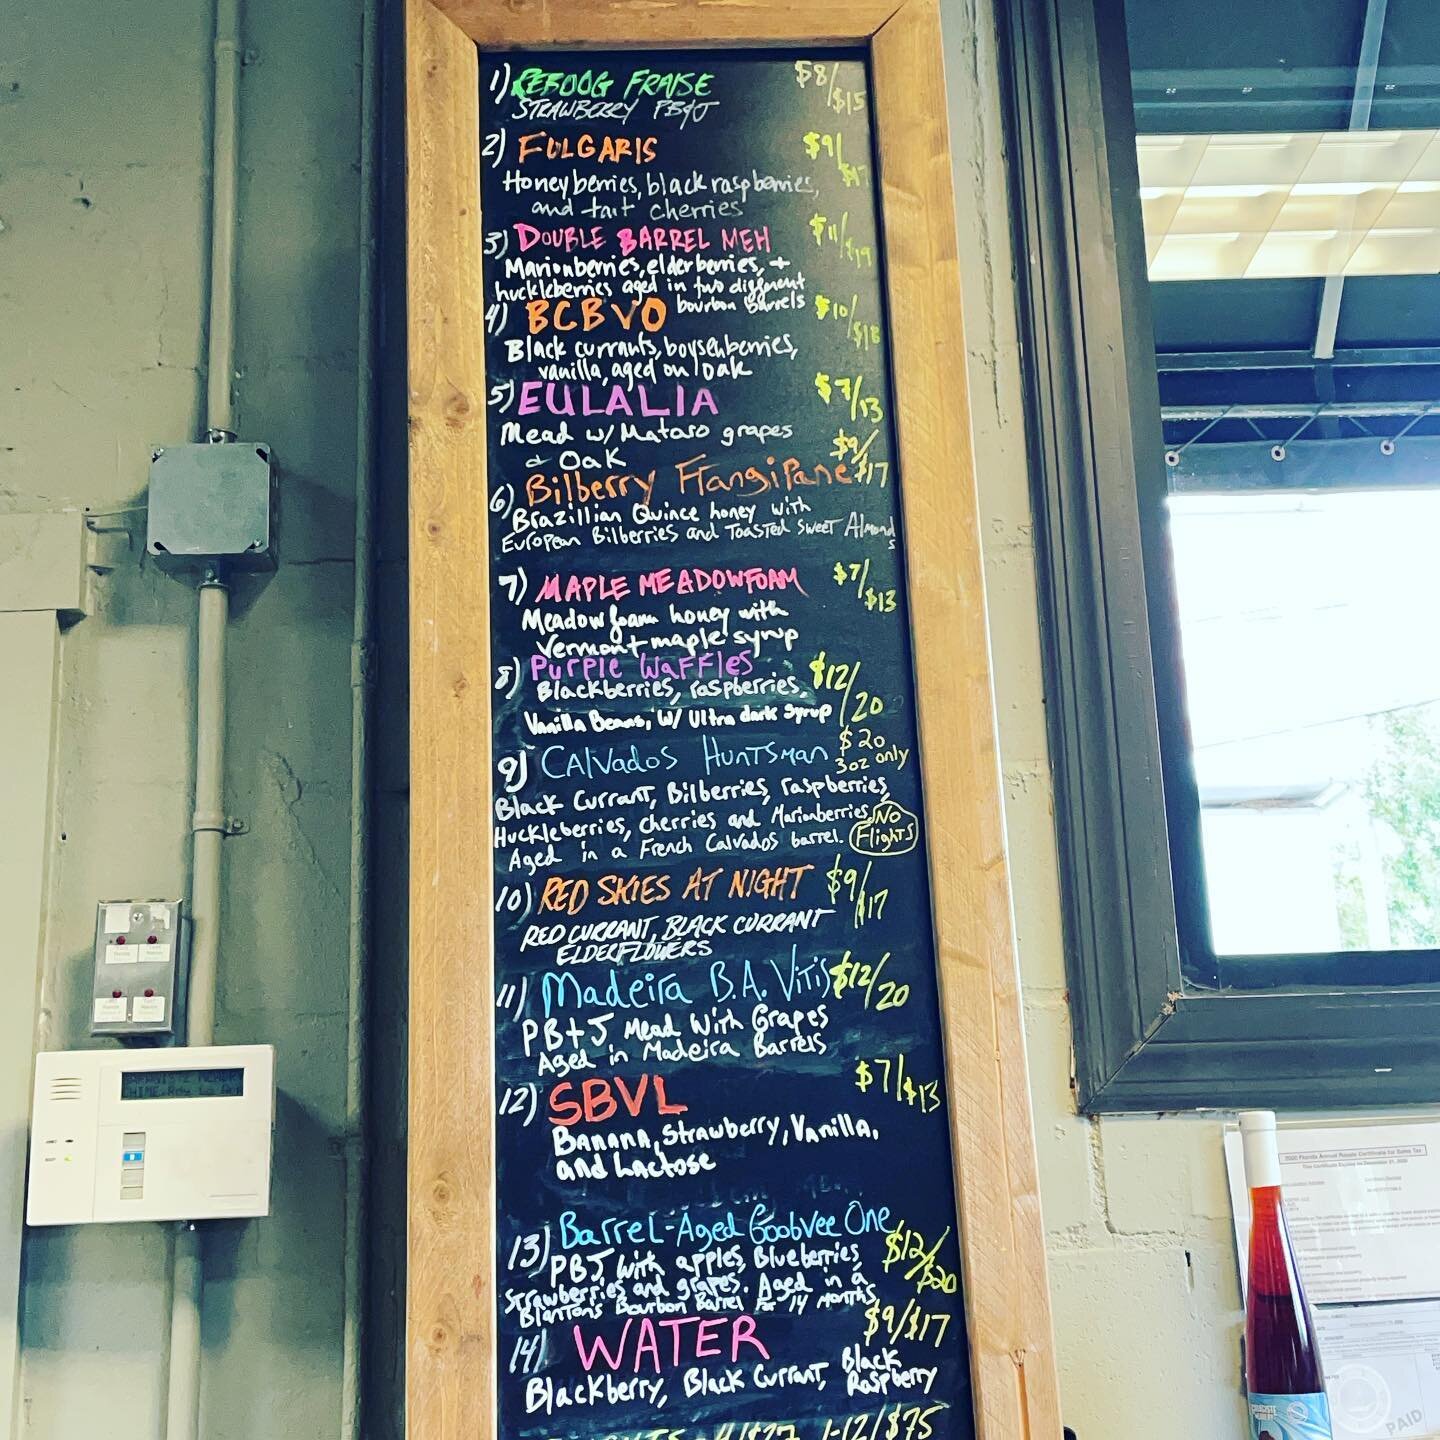 1) REBOOG FRAISE $8/$15
STRAWBERRY PB&J
2) FULGARIS $9/$17
Honeyberries, black raspberries,
and tart cherries
3) DOUBLE BARREL MEH $11/$19
Marionberries, elderberries, +
huckleberries aged in two different
bourbon barrels
4) BCBVO $10/$18
Black currants, boysenberries,
vanilla, aged on oak
5) EULALIA $7/13
Mead w/ Mataro grapes
+ Oak
6) Bilberry Frangipane $9/$17
Brazillian Quince honey with
European Bilberries and Toasted Sweet Almonds
7) MAPLE MEADOWFOAM $7/$13
Meadowfoam honey with
Vermont maple syrup
8) Purple Waffles $12/20
Blackberries, raspberries,
Vanilla Beans, w/ Ultra dark syrup
9) CALVADOS HUNTSMAN $20
3oz only
Black Currant, Bilberries, raspberries,
Huckleberries, Cherries and Marionberries, No
Aged in a French Calvados barrel. Flights
10) RED SKIES AT NIGHT $9/$17
RED CURRANT, BLACK CURRANT
ELDERFLOWERS
11) Madeira B.A. Vitis $12/20
PB+J Mead With Grapes
Aged in Madeira Barrels
12) SBVL $7/$13
Banana, Strawberry, Vanilla,
and Lactose
13) Barrel-Aged Goobvee One $12/$20
PBJ with apples, Blueberries,
Strawberries and grapes. Aged in a
Blanton's Bourbon Barrel for 14 months
14) WATER $9/$17
Blackberry, Black Currant, Black
Raspberry
1-12/$75
2020 Florida Annual Resale Certificate for Sales Tax
This Certificate Expires on December 31, 2020
PAID